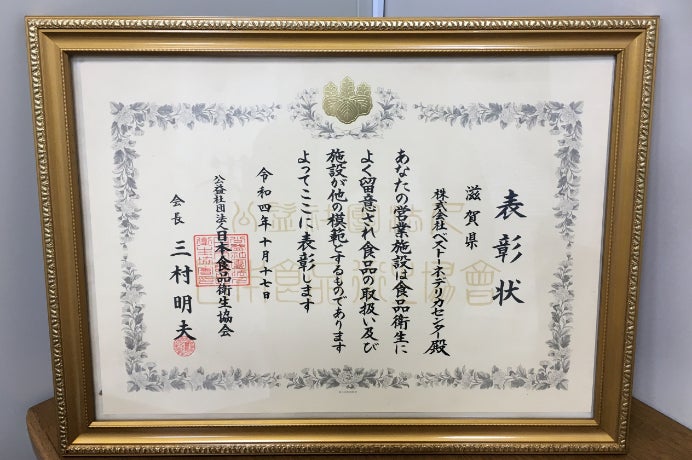 表彰状
滋賀県
株式会社ベストーネデリカセンター殿
あなたの営業施設は食品衛生に
よく留意され食品の取扱い及び
施設が他の模範とするものであります
よってここに表彰します
令和四年十月十七日
公益社団法人日本食品衛生協会
会長 三村明夫